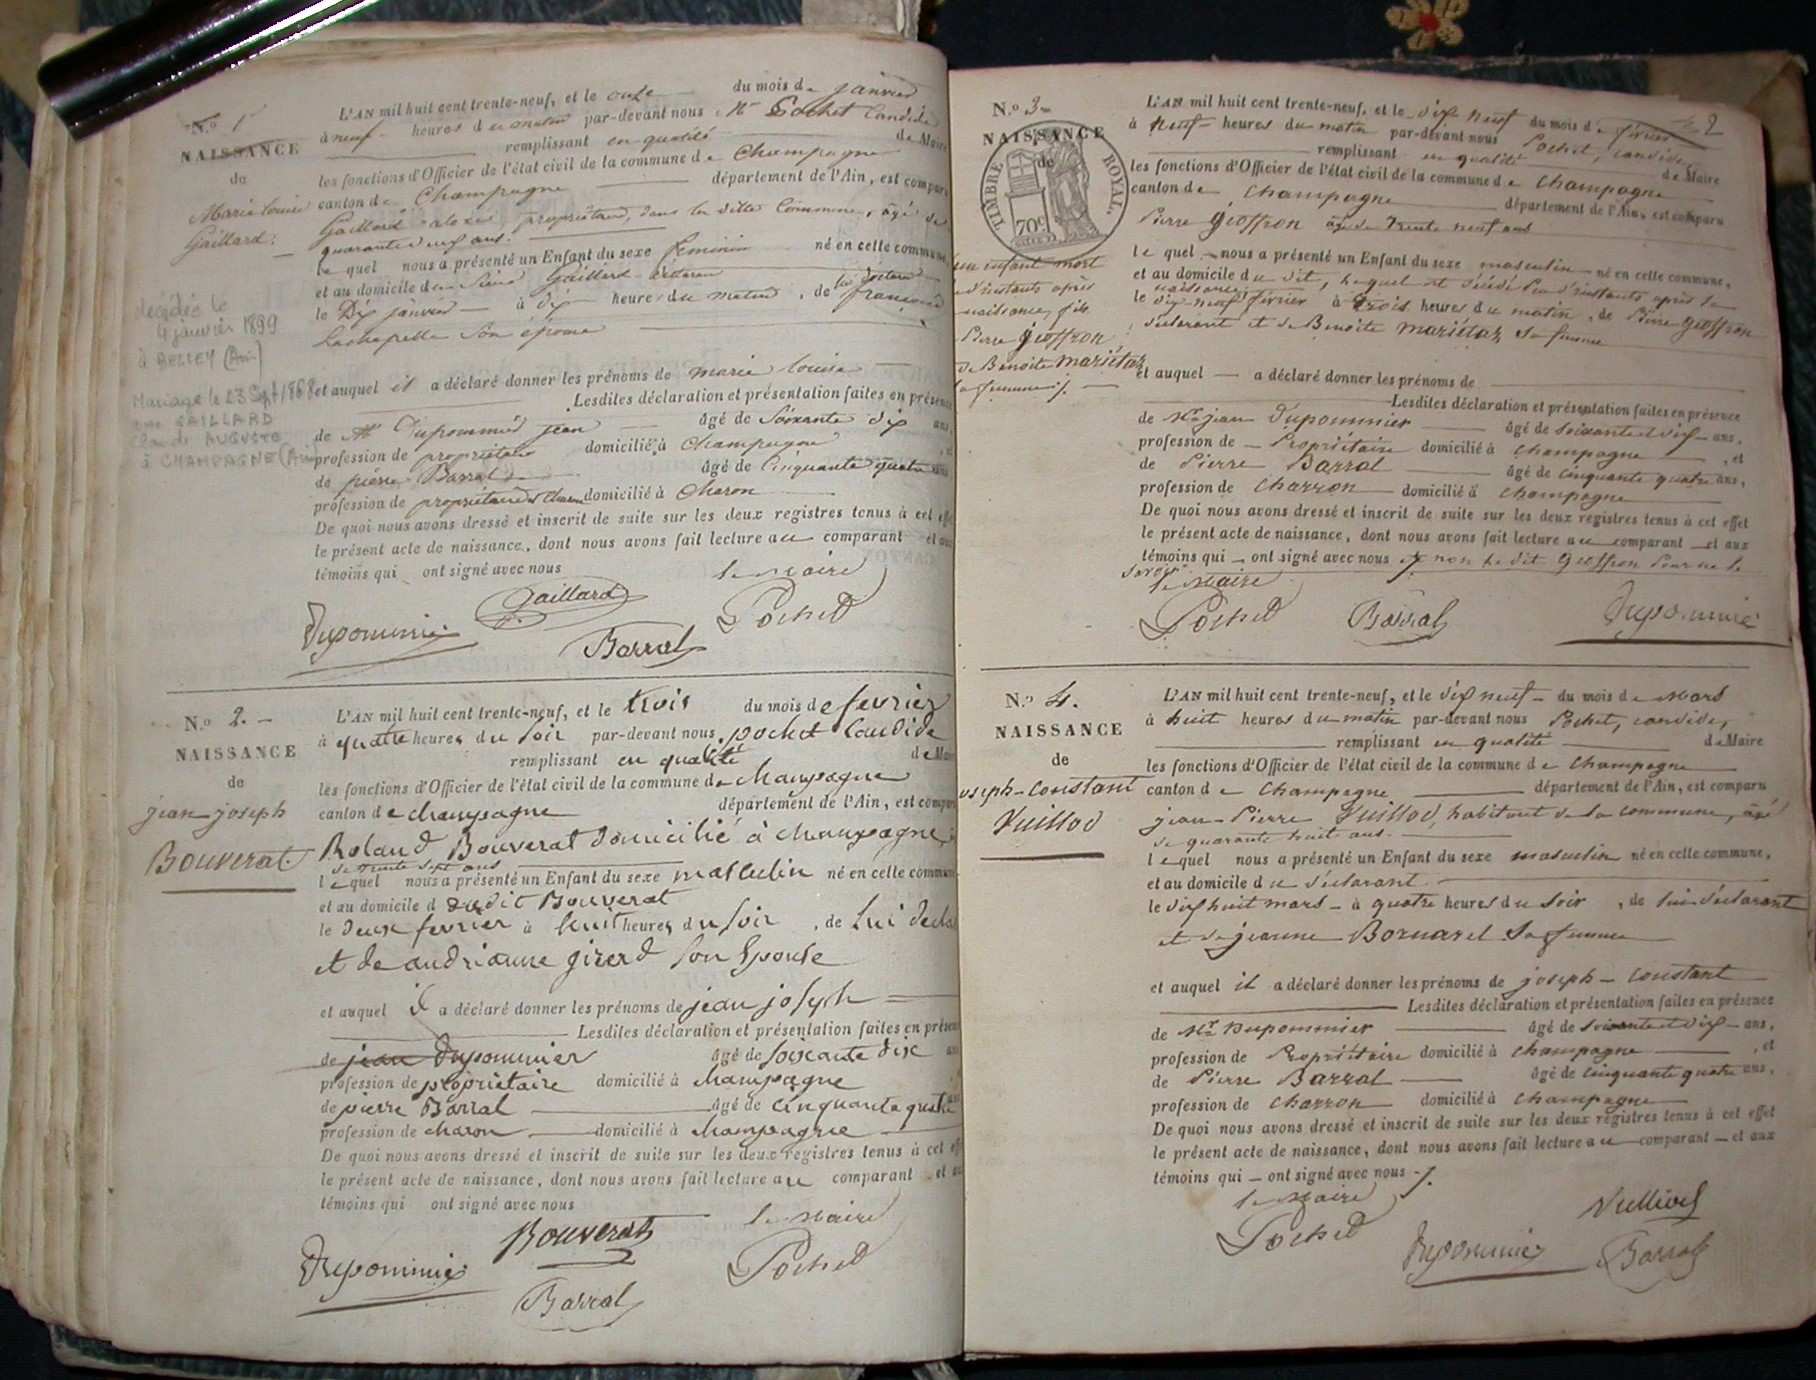 N.o 1
NAISSANCE
de
Marie louise
Gaillard.
décédée le
4 janvier 1899
à BELLEY (Ain)
Mariage le 23 Sept 1868
avec GAILLARD
Claude AUGUSTE
à CHAMPAGNE (Ain)
L'AN mil huit cent trente-neuf, et le onze du mois de janvier
à neuf heures du matin par-devant nous Mr Pochet Candide
remplissant en qualité de Maire
les fonctions d'Officier de l'état civil de la commune de Champagne
canton de Champagne département de l'Ain, est comparu
Gaillard propriétaire, dans la ditte Commune, âgé de
quarante neuf ans.
le quel nous a présenté un Enfant du sexe feminin né en cette commune,
et au domicile du Sieur Gaillard
le Dix janvier à dix heures du matin, de lui déclarant françoise
Lachapelle son épouse
et auquel il a déclaré donner les prénoms de marie louise
Lesdites déclaration et présentation faites en présence
de Mr Dupommier jean âgé de Soixante dix ans,
profession de propriétaire domicilié à Champagne, et
de pierre Barral âgé de Cinquante quatre ans
profession de propriétaire domicilié à Charon
De quoi nous avons dressé et inscrit de suite sur les deux registres tenus à cet effet
le présent acte de naissance, dont nous avons fait lecture au comparant et aux
témoins qui ont signé avec nous
le Maire
Gaillard
Pochet
Dupommier
Barral
N.o 2.
NAISSANCE
de
jean joseph
Bouverat.
L'AN mil huit cent trente-neuf, et le trois du mois de fevrier
à quatre heures du soir par-devant nous pochet Candide
remplissant en qualité de Maire
les fonctions d'Officier de l'état civil de la commune de champagne
canton de champagne département de l'Ain, est comparu
Roland Bouverat domicilié à champagne
de trente sept ans
le quel nous a présenté un Enfant du sexe masculin né en cette commune
et au domicile dudit Bouverat
le deux fevrier à huit heures du soir, de lui decla
et de andrianne girerd son Epouse
et auquel il a déclaré donner les prénoms de jean joseph
Lesdites déclaration et présentation faites en présen
de jean Dupommier âgé de soixante dix ans
profession de propriétaire domicilié à champagne
de pierre Barral âgé de cinquante quatre ans
profession de charon domicilié à champagne
De quoi nous avons dressé et inscrit de suite sur les deux registres tenus à cet eff
le présent acte de naissance, dont nous avons fait lecture au comparant et au
témoins qui ont signé avec nous
le Maire
Bouverat
Dupommier
Pochet
Barral
2
N.o 3
NAISSANCE
de
TIMBRE ROYAL.
70c
un enfant mort
d'instants après
naissance, fils
Pierre Geoffron
de Benoite Mariétaz
sa femme
L'AN mil huit cent trente-neuf, et le dix neuf du mois de février
à neuf heures du matin par-devant nous Pochet, candide,
remplissant en qualité de Maire
les fonctions d'Officier de l'état civil de la commune de Champagne
canton de Champagne département de l'Ain, est comparu
Pierre Geoffron âgé de trente neuf ans
le quel nous a présenté un Enfant du sexe masculin né en cette commune,
et au domicile du dit, lequel est décédé peu d'instants après sa
naissance,
le dix neuf février à trois heures du matin, de Pierre Geoffron
déclarant et de Benoite Mariétaz sa femme
et auquel a déclaré donner les prénoms de
Lesdites déclaration et présentation faites en présence
de Mr jean Dupommier âgé de soixante et dix ans,
profession de Propriétaire domicilié à champagne, et
de Pierre Barral âgé de cinquante quatre ans,
profession de charron domicilié à champagne
De quoi nous avons dressé et inscrit de suite sur les deux registres tenus à cet effet
le présent acte de naissance, dont nous avons fait lecture au comparant et aux
témoins qui ont signé avec nous et non le dit Geoffron pour ne le
savoir
le Maire
Pochet
Barral
Dupommier
N.o 4.
NAISSANCE
de
oseph-Constant
Vuillod
L'AN mil huit cent trente-neuf, et le dix neuf du mois de Mars
à huit heures du matin par-devant nous Pochet, candide,
remplissant en qualité de Maire
les fonctions d'Officier de l'état civil de la commune de Champagne
canton de Champagne département de l'Ain, est comparu
jean-Pierre Vuillod, habitant de la commune, âgé
de quarante huit ans.
lequel nous a présenté un Enfant du sexe masculin né en cette commune,
et au domicile du déclarant.
le dix huit mars à quatre heures du soir, de lui déclarant
et de jeanne Bornarel sa femme
et auquel il a déclaré donner les prénoms de joseph-constant
Lesdites déclaration et présentation faites en présence
de Mr Dupommier âgé de soixante et dix ans,
profession de Propriétaire domicilié à champagne, et
de Pierre Barral âgé de cinquante quatre ans,
profession de charron domicilié à champagne
De quoi nous avons dressé et inscrit de suite sur les deux registres tenus à cet effet
le présent acte de naissance, dont nous avons fait lecture au comparant et aux
témoins qui ont signé avec nous
le Maire
Pochet
Dupommier
Barral